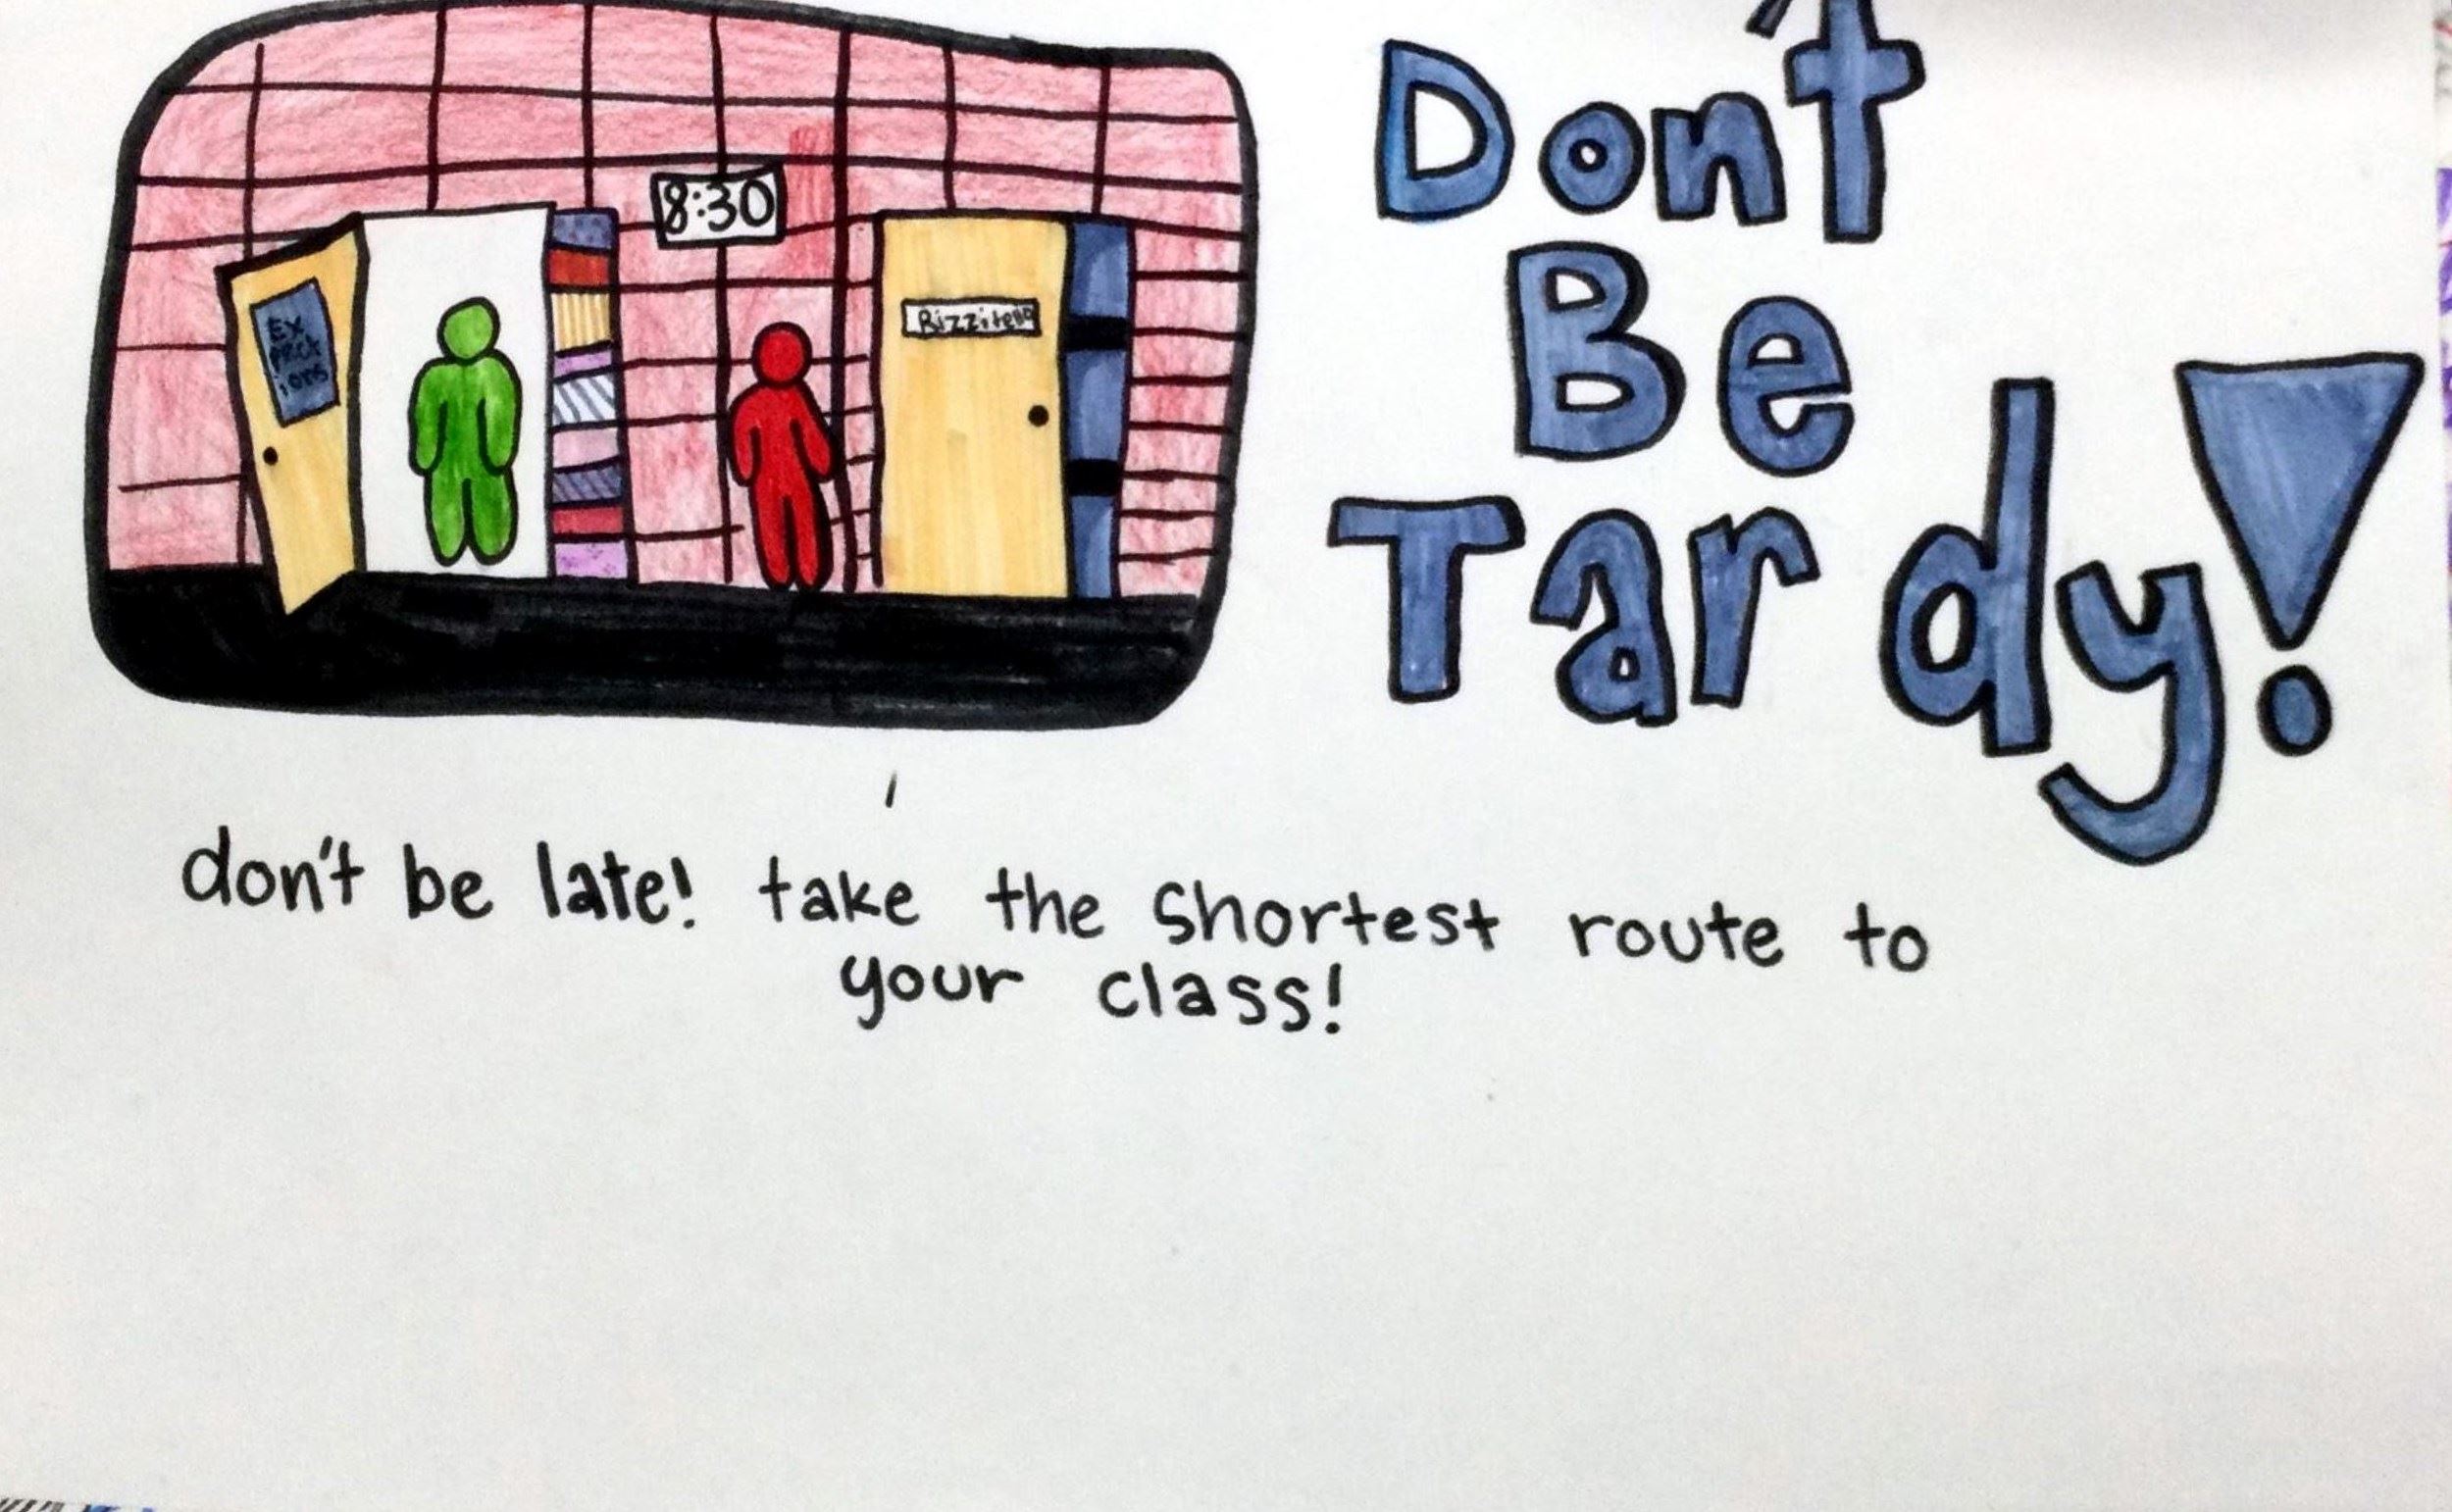 8:30
Ex
pect
ions
Don't
Be
Tardy!
don't be late! take the shortest route to
your class!